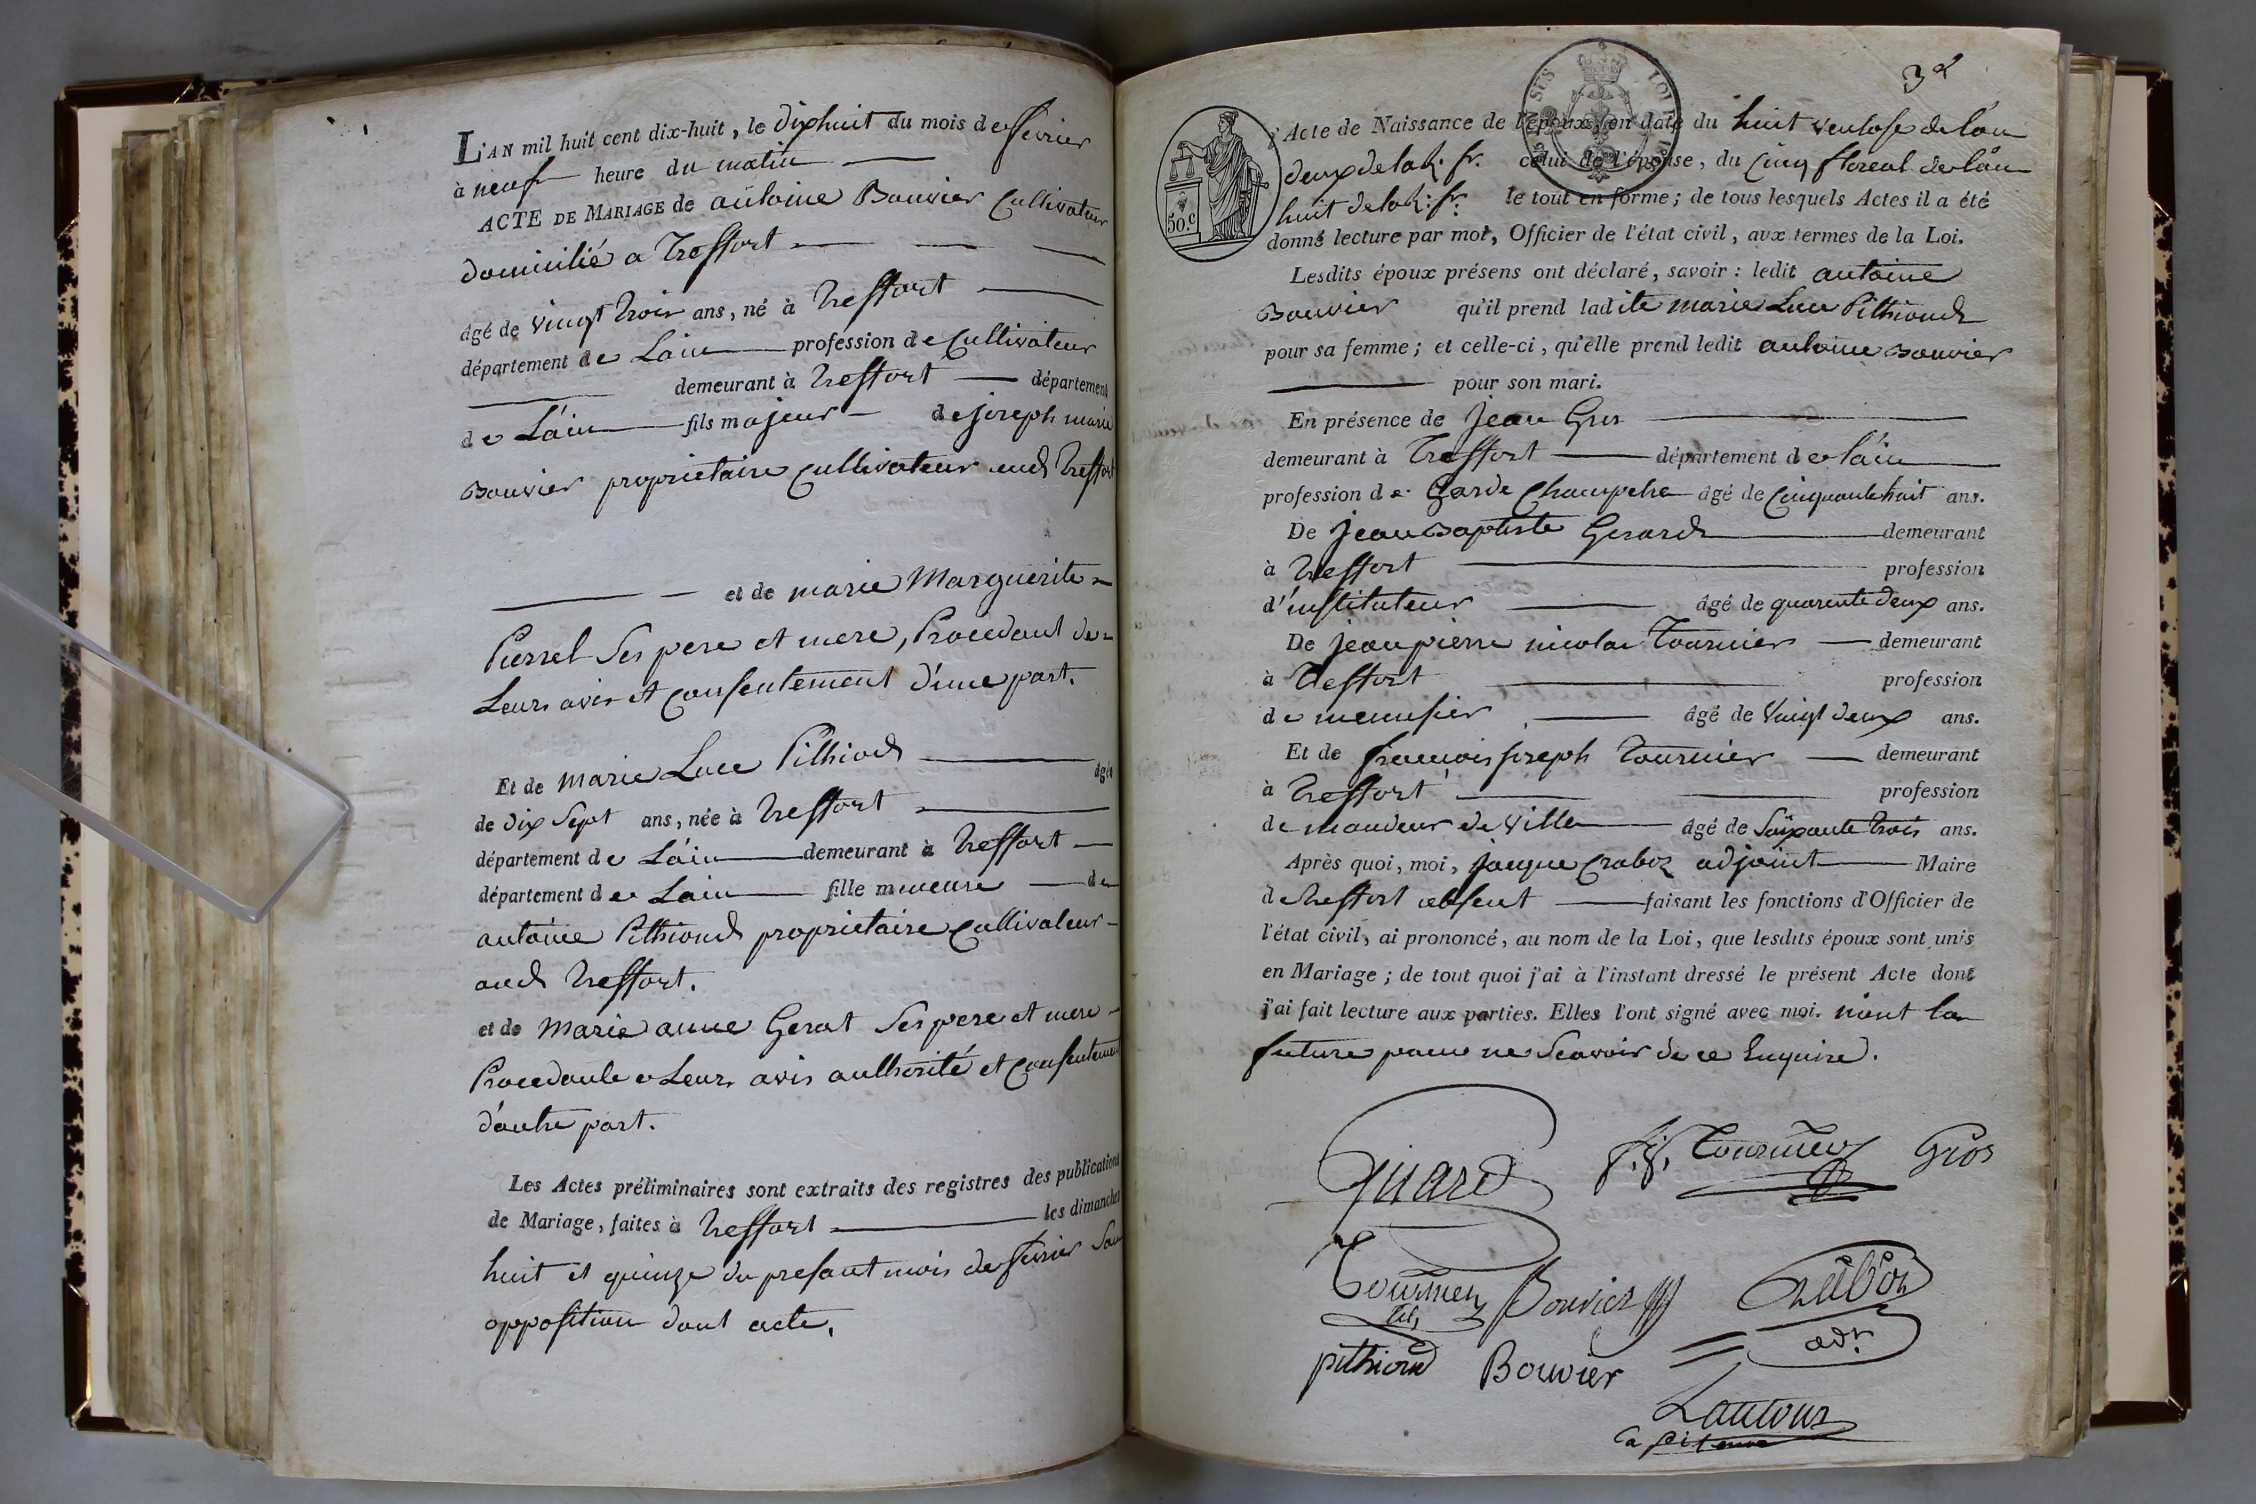 L'AN mil huit cent dix-huit, le dixhuit du mois de fevrier
à neuf heure du matin
ACTE DE MARIAGE de antoine Bouvier Cultivateur
domicilié a Treffort
âgé de vingt trois ans, né à Treffort
département de Lain profession de Cultivateur
demeurant à Treffort département
de L'ain fils majeur de joseph marie
Bouvier proprietaire Cultivateur aud Treffort
et de marie Marguerite
Pierrel Ses pere et mere, Procedant de
Leurs avis et consentement d'une part.
Et de marie Luce Pithiod âgée
de dix Sept ans, née à Treffort
département de L'ain demeurant à Treffort
département de Lain fille mineure de
antoine Pithioud proprietaire Cultivateur
aud Treffort.
et de Marie anne Gerat Ses pere et mere
Procedante de Leurs avis authorité et Consentement
d'autre part.
Les Actes préliminaires sont extraits des registres des publications
de Mariage, faites à Treffort les dimanches
huit et quinze du present mois de fevrier San
opposition dont acte.
3e
50.c
l'Acte de Naissance de l'époux, en date du huit ventose de lan
deux de la R. fr. celui de l'épouse, du Cinq floreal de lan
huit de la R. fr. le tout en forme; de tous lesquels Actes il a été
donné lecture par moi, Officier de l'état civil, aux termes de la Loi.
Lesdits époux présens ont déclaré, savoir: ledit antoine
Bouvier qu'il prend ladite marie Luce Pithioud
pour sa femme; et celle-ci, qu'elle prend ledit antoine Bouvier
pour son mari.
En présence de Jean Gros
demeurant à Treffort département de l'ain
profession de Garde Champetre âgé de Cinquante huit ans.
De Jean Baptiste Gerard demeurant
à Treffort profession
d'instituteur âgé de quarente deux ans.
De Jean pierre nicolas Tournier demeurant
à Treffort profession
de menusier âgé de Vingt deux ans.
Et de francois joseph Tournier demeurant
à Treffort profession
de mandeur de Ville âgé de Soixante trois ans.
Après quoi, moi, jacque Craboz adjoint Maire
de Treffort absent faisant les fonctions d'Officier de
l'état civil, ai prononcé, au nom de la Loi, que lesdits époux sont unis
en Mariage; de tout quoi j'ai à l'instant dressé le présent Acte dont
j'ai fait lecture aux parties. Elles l'ont signé avec moi. nont la
future pour ne Scavoir de ce Enquise.
f. j. Tournier Gros
Tournier fils Bouvier Craboz
adt.
pithioud Bouvier